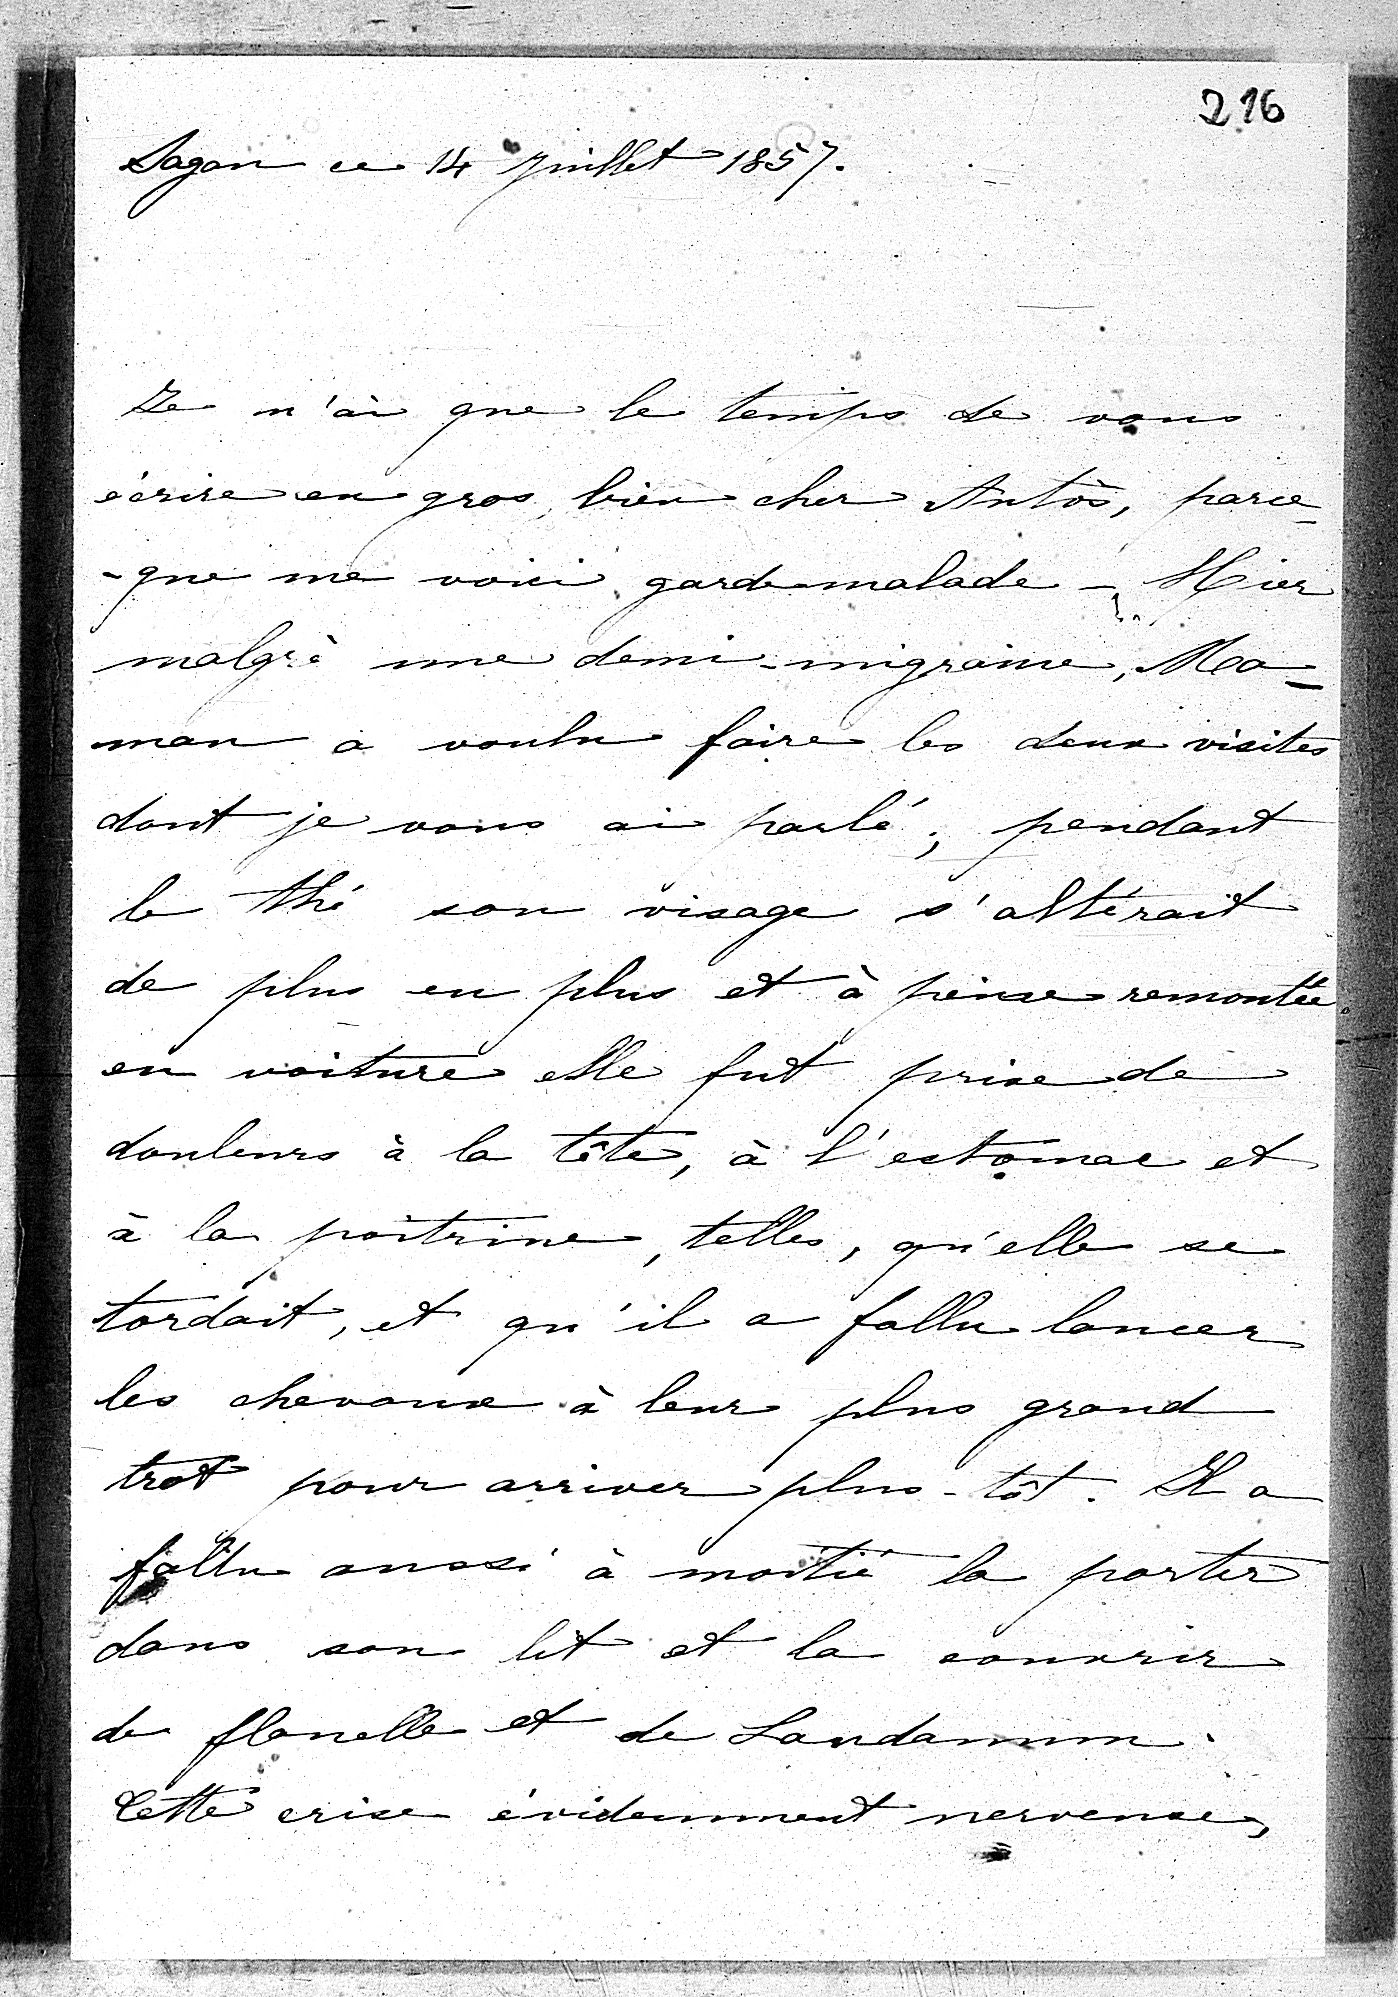 216
Sagan ce 14 Juillet 1857.
Je n'ai que le temps de vous
écrire en gros, bien cher Antôs, parce-
-que me voici garde-malade - Hier
malgrè une demi-migraine, Ma-
man a voulu faire les deux visites
dont je vous ai parlé; pendant
le thé son visage s'altérait
de plus en plus et à peine remontée
en voiture elle fut prise de
douleurs à la tête, à l'estomac et
à la poitrine, telles, qu'elle se
tordait, et qu'il a fallu lancer
les chevaux à leur plus grand
trot pour arriver plus-tôt. Il a
fallu aussi à moitié la porter
dans son lit et la couvrir
de flanelle et de Laudanum.
Cette crise évidemment nerveuse,